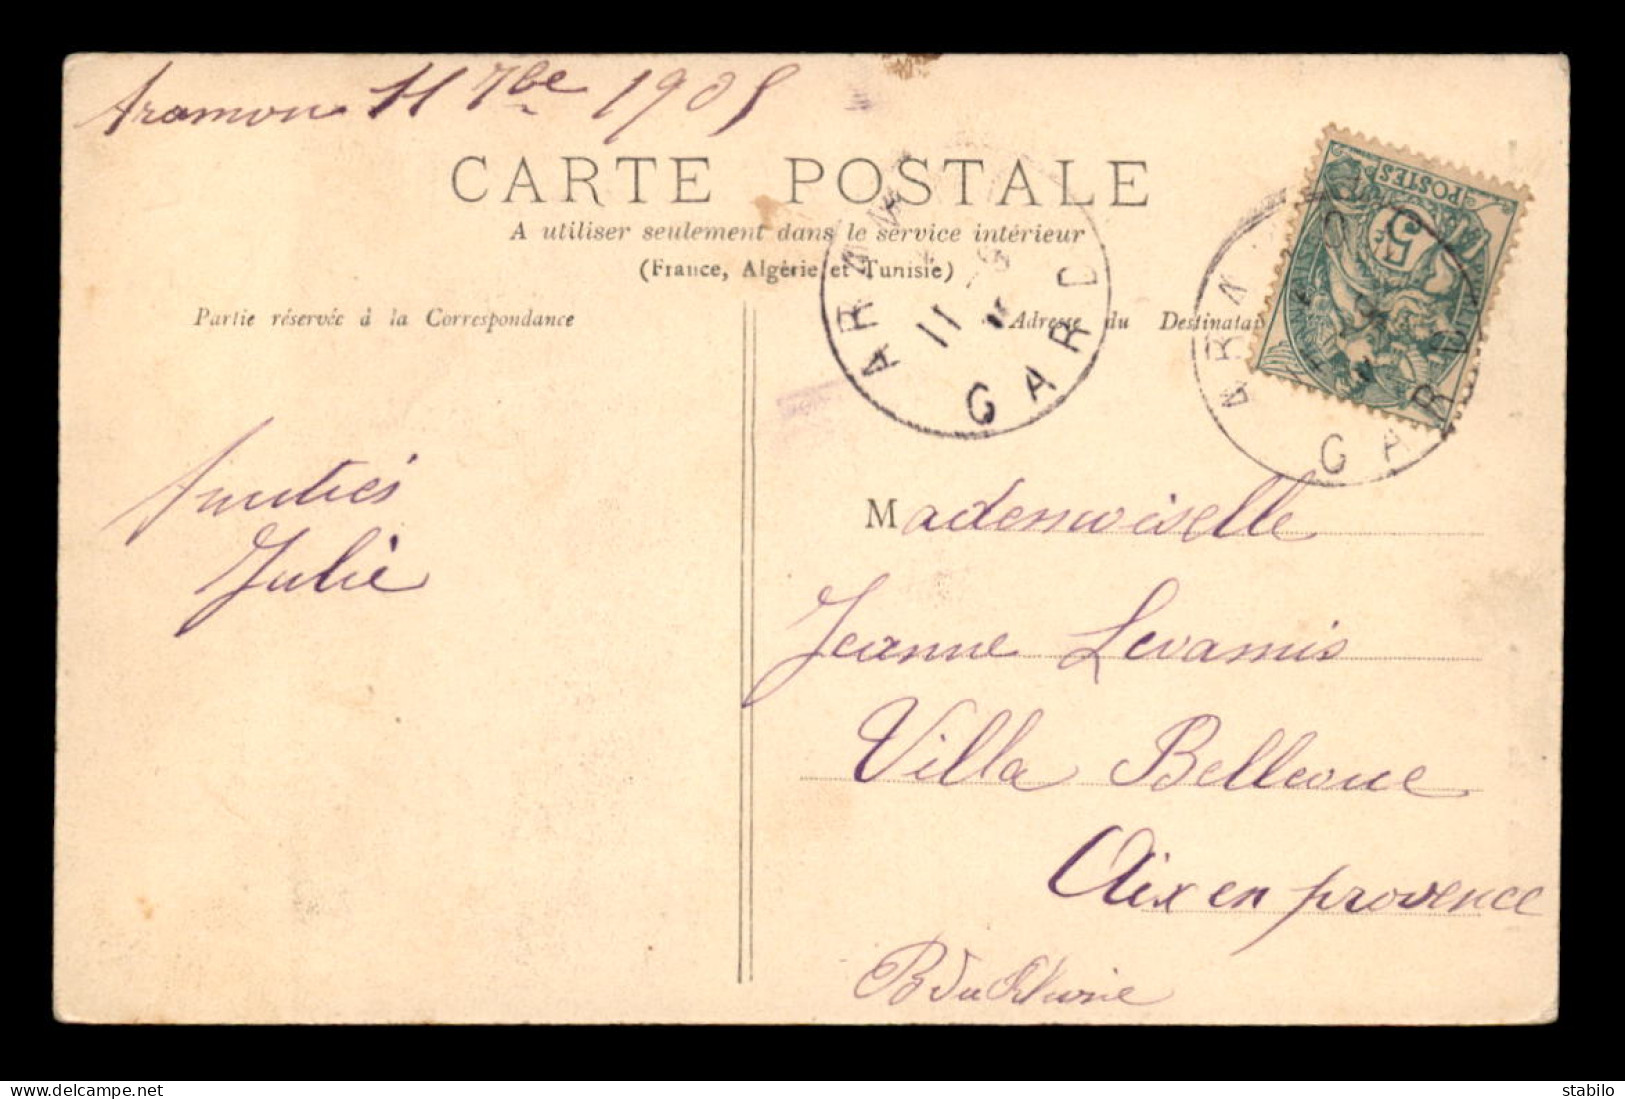 Aramon 11 7bre 1905
CARTE POSTALE
A utiliser seulement dans le service intérieur
(France, Algérie et Tunisie)
Partie réservée à la Correspondance
Adresse du Destinatai
ARAM
11 -9
GARD
POSTES
5
ARAM
GARD
Amitiés
Julie
Mademoiselle
Jeanne Levamis
Villa Bellevue
Aix en provence
B du Rhône
delcampe.net
stabilo